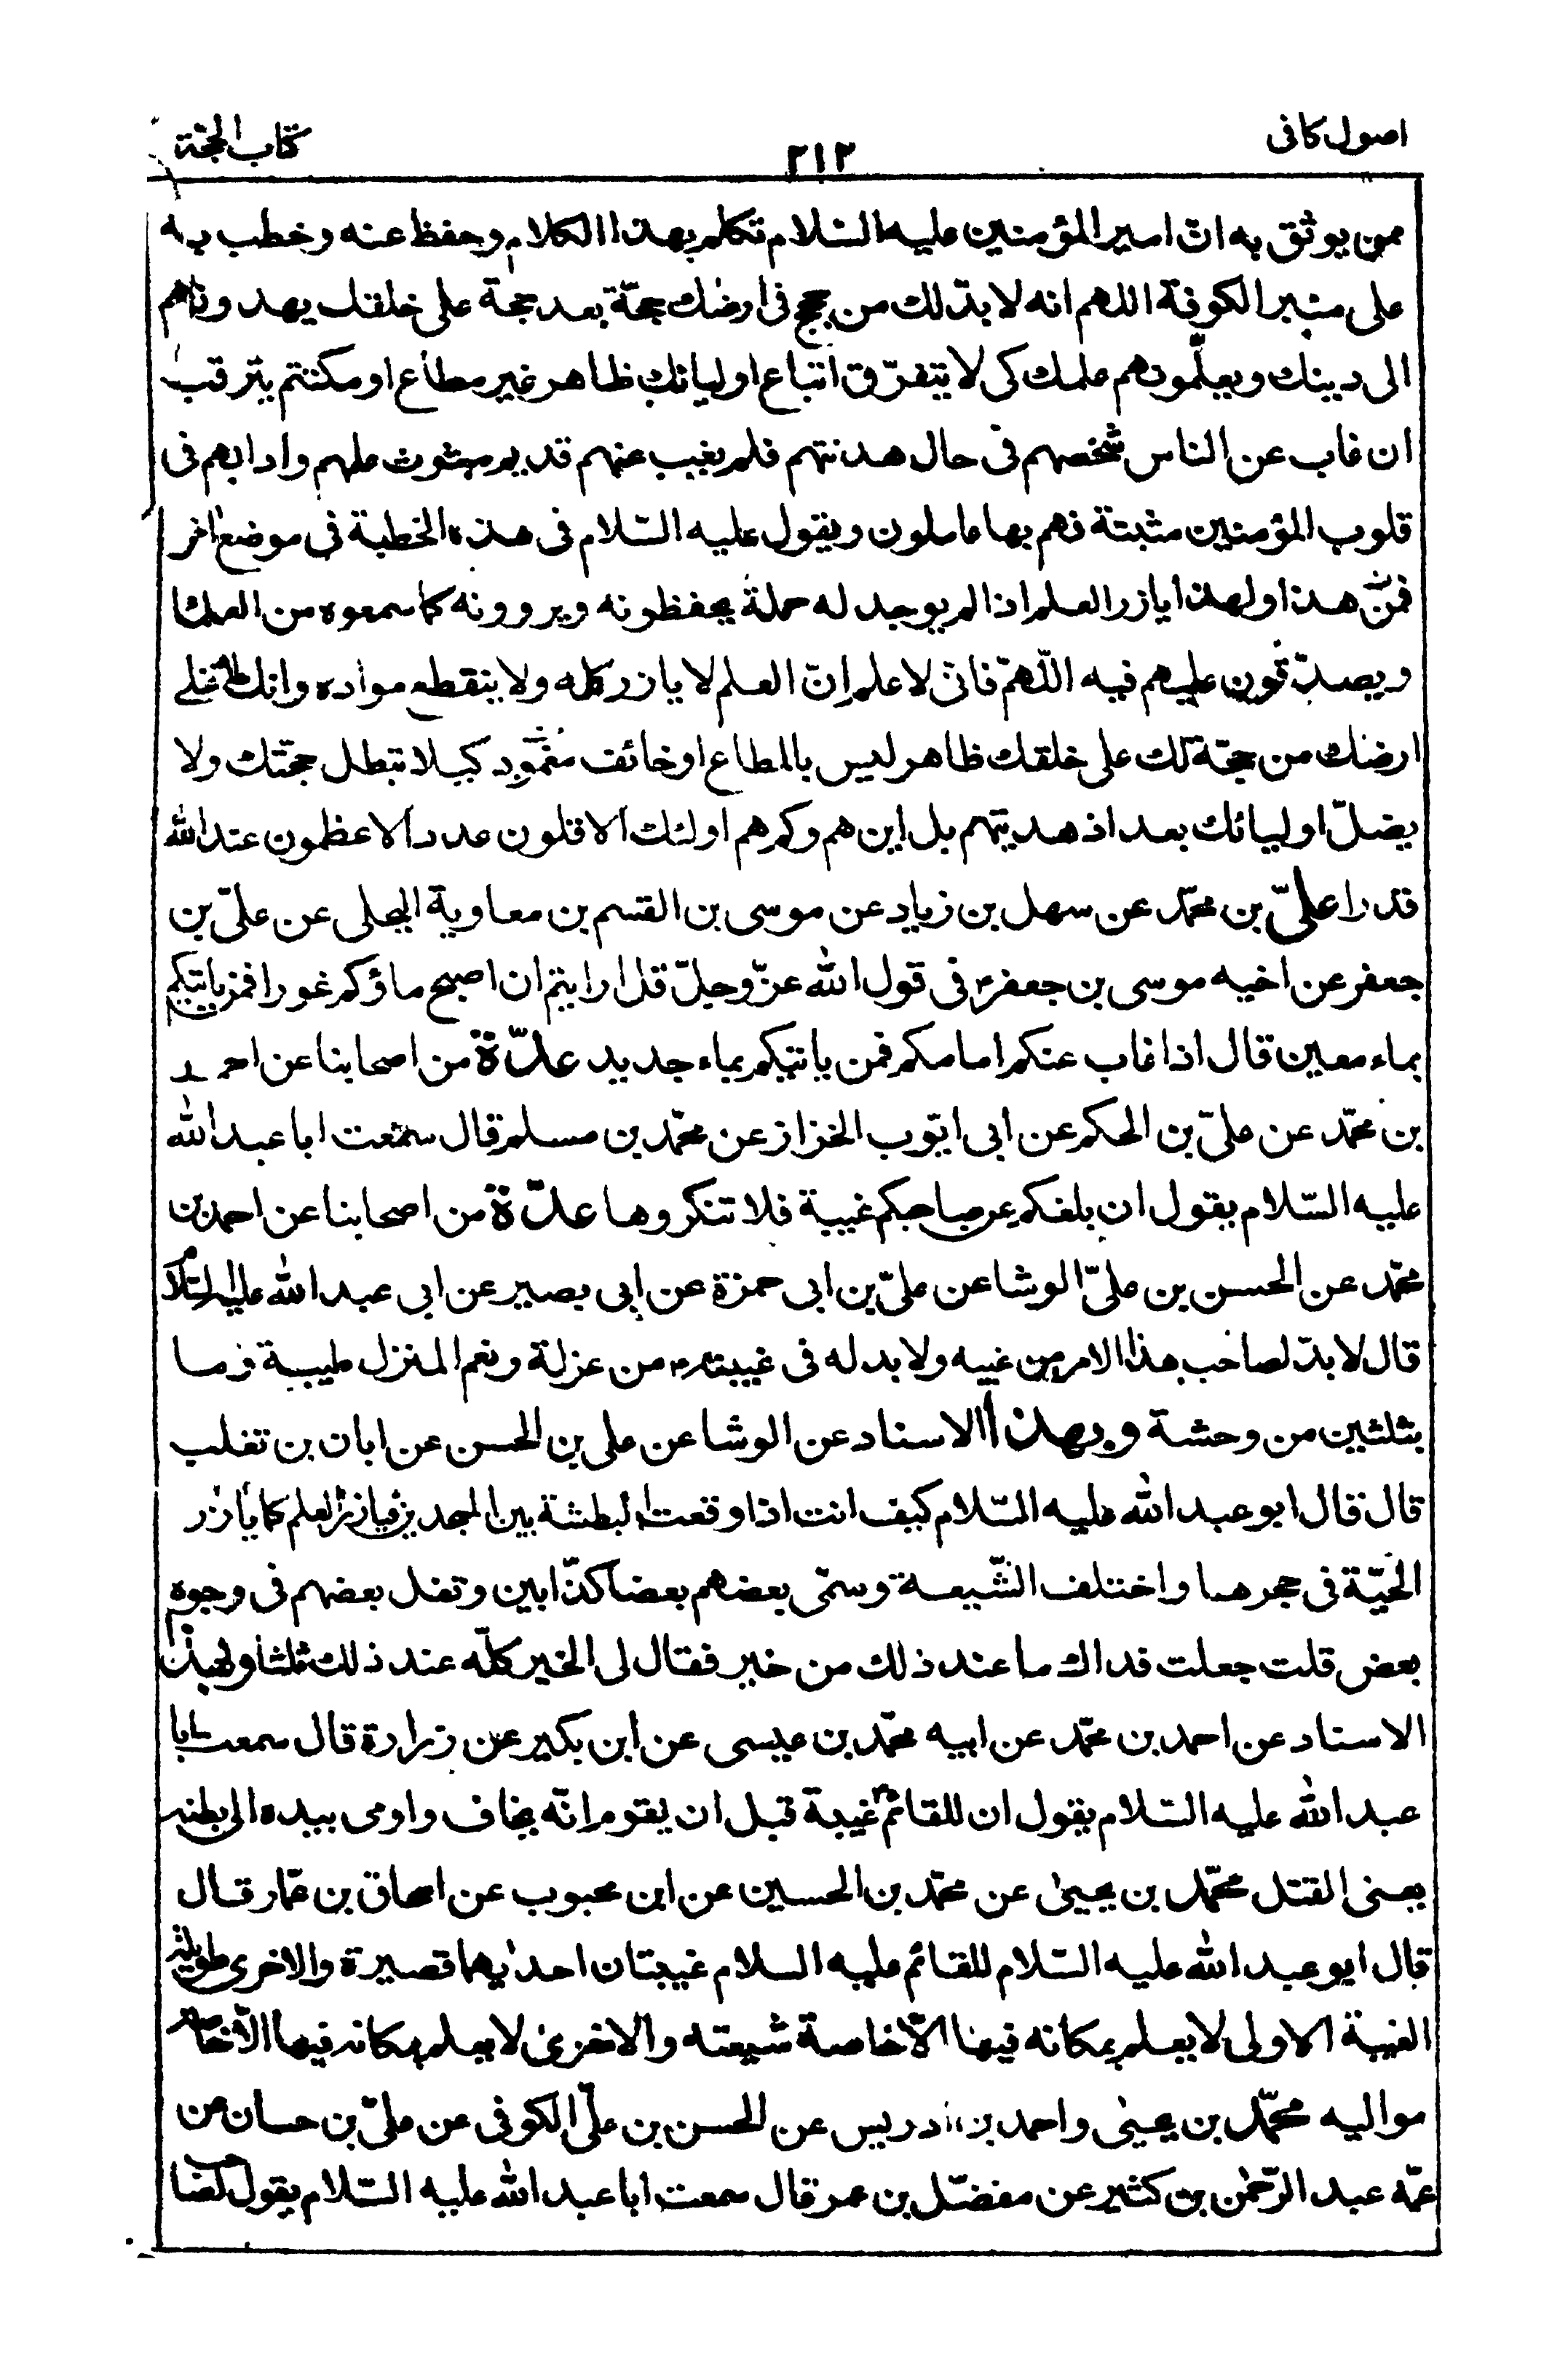 اصول كافى
٢١٢
كتاب الحجّة
ممن يوثق به انّ امير المؤمنين عليه السّلام تكلم بهذا الكلام وحفظ عنه وخطب به
على منبر الكوفة اللهم انه لا بدّ لك من حجج فى ارضك حجّة بعد حجة على خلقك يهدونهم
الى دينك ويعلّمونهم علمك كى لا يتفرّق اتباع اوليائك ظاهر غير مطاع او مكتتم يترقب
ان غاب عن الناس شخصهم فى حال هدنتهم فلم يغب عنهم قديم مبثوث علمهم وادابهم فى
قلوب المؤمنين مثبتة فهم بها عاملون ويقول عليه السّلام فى هذه الخطبة فى موضع اخر
فمن هذا ولهذا يازر العلم اذا لم يوجد له حملة يحفظونه ويروونه كما سمعوه من العلماء
ويصدّقون عليهم فيه اللّهمّ فانى لاعلم انّ العلم لا يازر كله ولا ينقطع مواده وانك لا تخلى
ارضك من حجّة لك على خلقك ظاهر ليس بالمطاع او خائف مغمود كيلا تبطل حجّتك ولا
يضلّ اوليائك بعد اذ هديتهم بل اين هم وكم هم اولئك الاقلون عددا الاعظمون عند الله
قدرا علىّ بن محمّد عن سهل بن زياد عن موسى بن القسم بن معاوية البجلى عن علىّ بن
جعفر عن اخيه موسى بن جعفر ع فى قول الله عزّ وجلّ قل ارايتم ان اصبح ماؤكم غورا فمن ياتيكم
بماء معين قال اذا غاب عنكم امامكم فمن ياتيكم بماء جديد عدّة من اصحابنا عن احمد
بن محمّد عن علىّ بن الحكم عن ابى ايّوب الخزاز عن محمّد بن مسلم قال سمعت ابا عبد الله
عليه السّلام يقول ان بلغكم عن صاحبكم غيبة فلا تنكروها عدّة من اصحابنا عن احمد بن
محمّد عن الحسن بن علىّ الوشا عن علىّ بن ابى حمزة عن ابى بصير عن ابى عبد الله عليه السّلام
قال لا بدّ لصاحب هذا الامر من غيبه ولا بد له فى غيبته من عزلة ونعم المنزل طيبة وما
بثلثين من وحشة وبهذا الاسناد عن الوشا عن على بن الحسن عن ابان بن تغلب
قال قال ابو عبد الله عليه السّلام كيف انت اذا وقعت البطشة بين المسجدين فيازر العلم كما يازر
الحيّة فى جحرها واختلف الشّيعة وسمّى بعضهم بعضا كذّابين وتفل بعضهم فى وجوه
بعض قلت جعلت فداك ما عند ذلك من خير فقال لى الخير كلّه عند ذلك ثلثا وبهذا
الاسناد عن احمد بن محمّد عن ابيه محمّد بن عيسى عن ابن بكير عن زرارة قال سمعت ابا
عبد الله عليه السّلام يقول ان للقائم غيبة قبل ان يقوم انّه يخاف واومى بيده الى بطنه
يعنى القتل محمّد بن يحيىٰ عن محمّد بن الحسين عن ابن محبوب عن اسحاق بن عمّار قال
قال ابو عبد الله عليه السّلام للقائم عليه السلام غيبتان احدٰيهما قصيرة والاخرى طويلة
الغيبة الاولى لا يعلم بمكانه فيها الّا خاصة شيعته والاخرىٰ لا يعلم بمكانه فيها الّا خاصة
مواليه محمّد بن يحيىٰ واحمد بن ادريس عن الحسن بن علّى الكوفى عن علىّ بن حسان عن
عمّه عبد الرّحمٰن بن كثير عن مفضّل بن عمر قال سمعت ابا عبد الله عليه السّلام يقول لصاحب